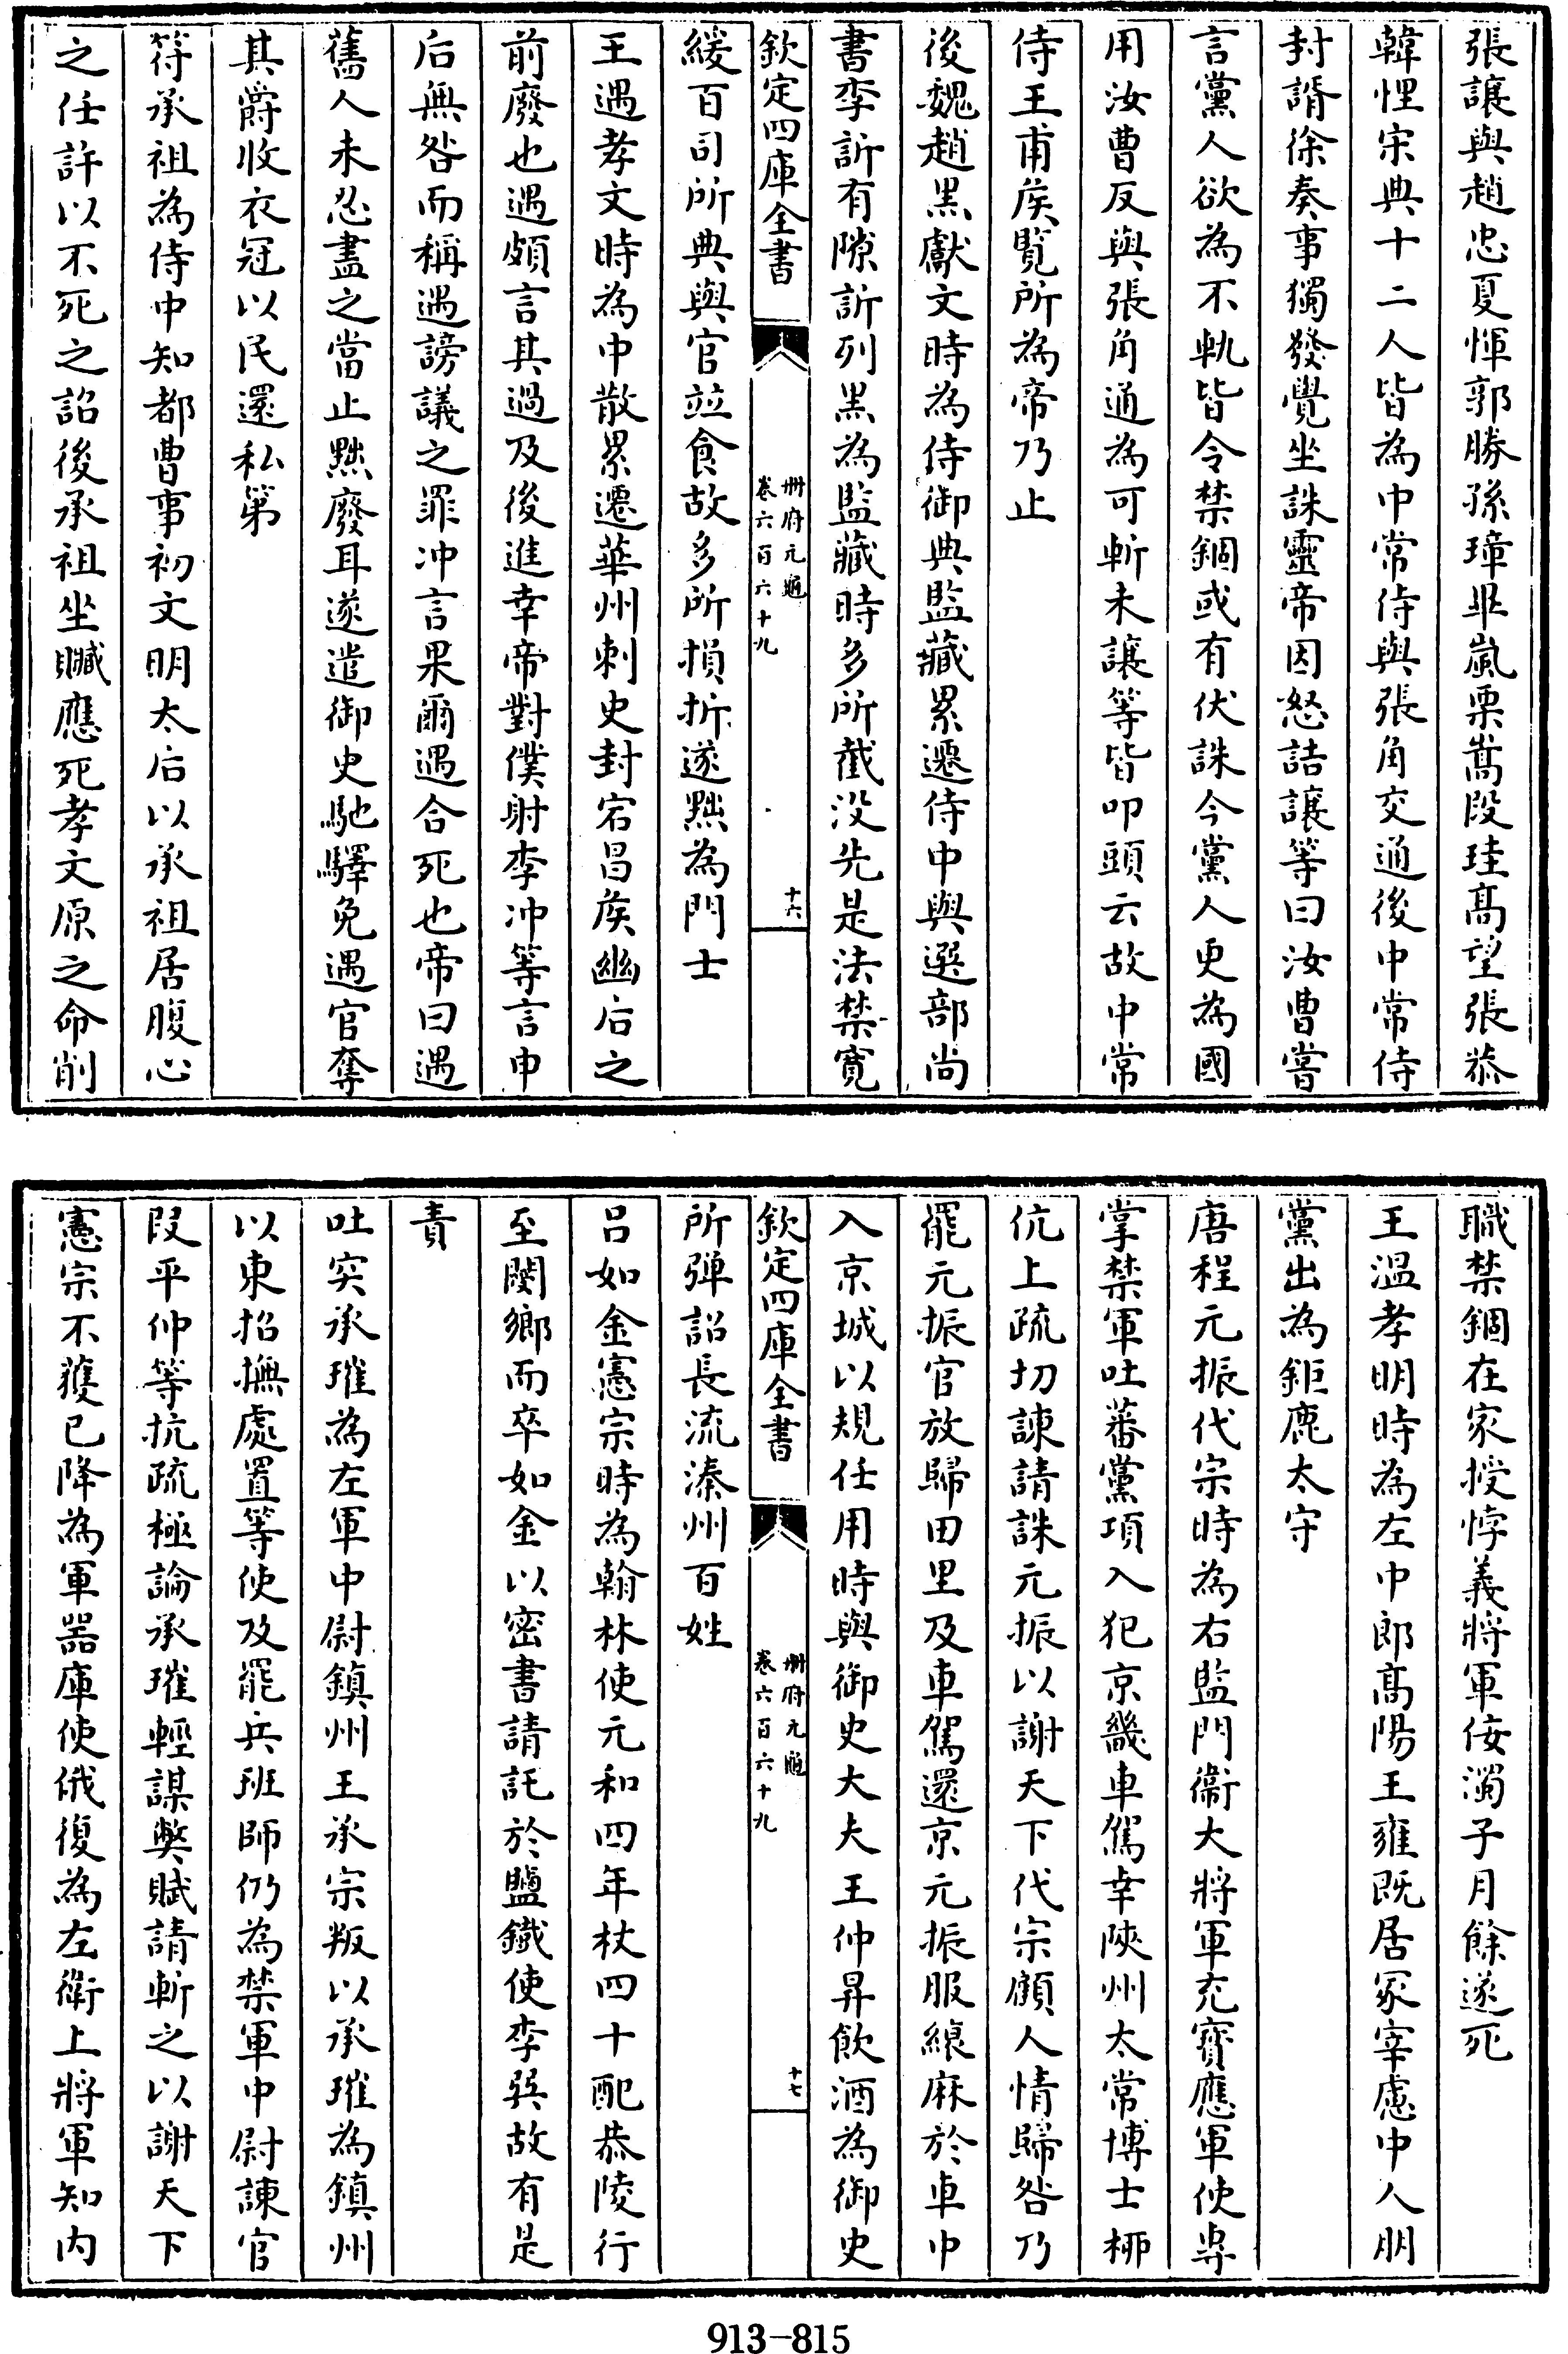 張讓與趙忠夏惲郭勝孫璋畢嵐栗嵩段珪髙望張恭
韓悝宋典十二人皆為中常侍與張角交通後中常侍
封諝徐奏事獨發覺坐誅靈帝因怒詰讓等曰汝曹嘗
言黨人欲為不軌皆令禁錮或有伏誅今黨人更為國
用汝曹反與張角通為可斬未讓等皆叩頭云故中常
侍王甫侯覧所為帝乃止
後魏趙黒獻文時為侍御典監藏累遷侍中與選部尚
書李訢有隙訢列黒為監藏時多所截没先是法禁寛
欽定四庫全書
冊府元龜
卷六百六十九
十六
緩百司所典與官並食故多所損折遂黜為門士
王遇孝文時為中散累遷華州刺史封宕昌侯幽后之
前廢也遇頗言其過及後進幸帝對僕射李冲等言申
后無咎而稱遇謗議之罪冲言果爾遇合死也帝曰遇
舊人未忍盡之當止黜廢耳遂遣御史馳驛免遇官奪
其爵收衣冠以民還私第
符承祖為侍中知都曹事初文明太后以承祖居腹心
之任許以不死之詔後承祖坐贓應死孝文原之命削
職禁錮在家授悖義將軍佞濁子月餘遂死
王温孝明時為左中郎髙陽王雍既居冢宰慮中人朋
黨出為鉅鹿太守
唐程元振代宗時為右監門衞大將軍充寳應軍使專
掌禁軍吐蕃黨項入犯京畿車駕幸陜州太常博士栁
伉上疏切諫請誅元振以謝天下代宗顧人情歸咎乃
罷元振官放歸田里及車駕還京元振服縗麻於車中
入京城以規任用時與御史大夫王仲昇飲酒為御史
欽定四庫全書
冊府元龜
卷六百六十九
十七
所彈詔長流溱州百姓
吕如金憲宗時為翰林使元和四年杖四十配恭陵行
至閿鄉而卒如金以密書請託於鹽鐵使李巽故有是
責
吐突承璀為左軍中尉鎮州王承宗叛以承璀為鎮州
以東招撫處置等使及罷兵班師仍為禁軍中尉諫官
段平仲等抗疏極論承璀輕謀弊賦請斬之以謝天下
憲宗不獲已降為軍器庫使俄復為左衛上將軍知内
913-815